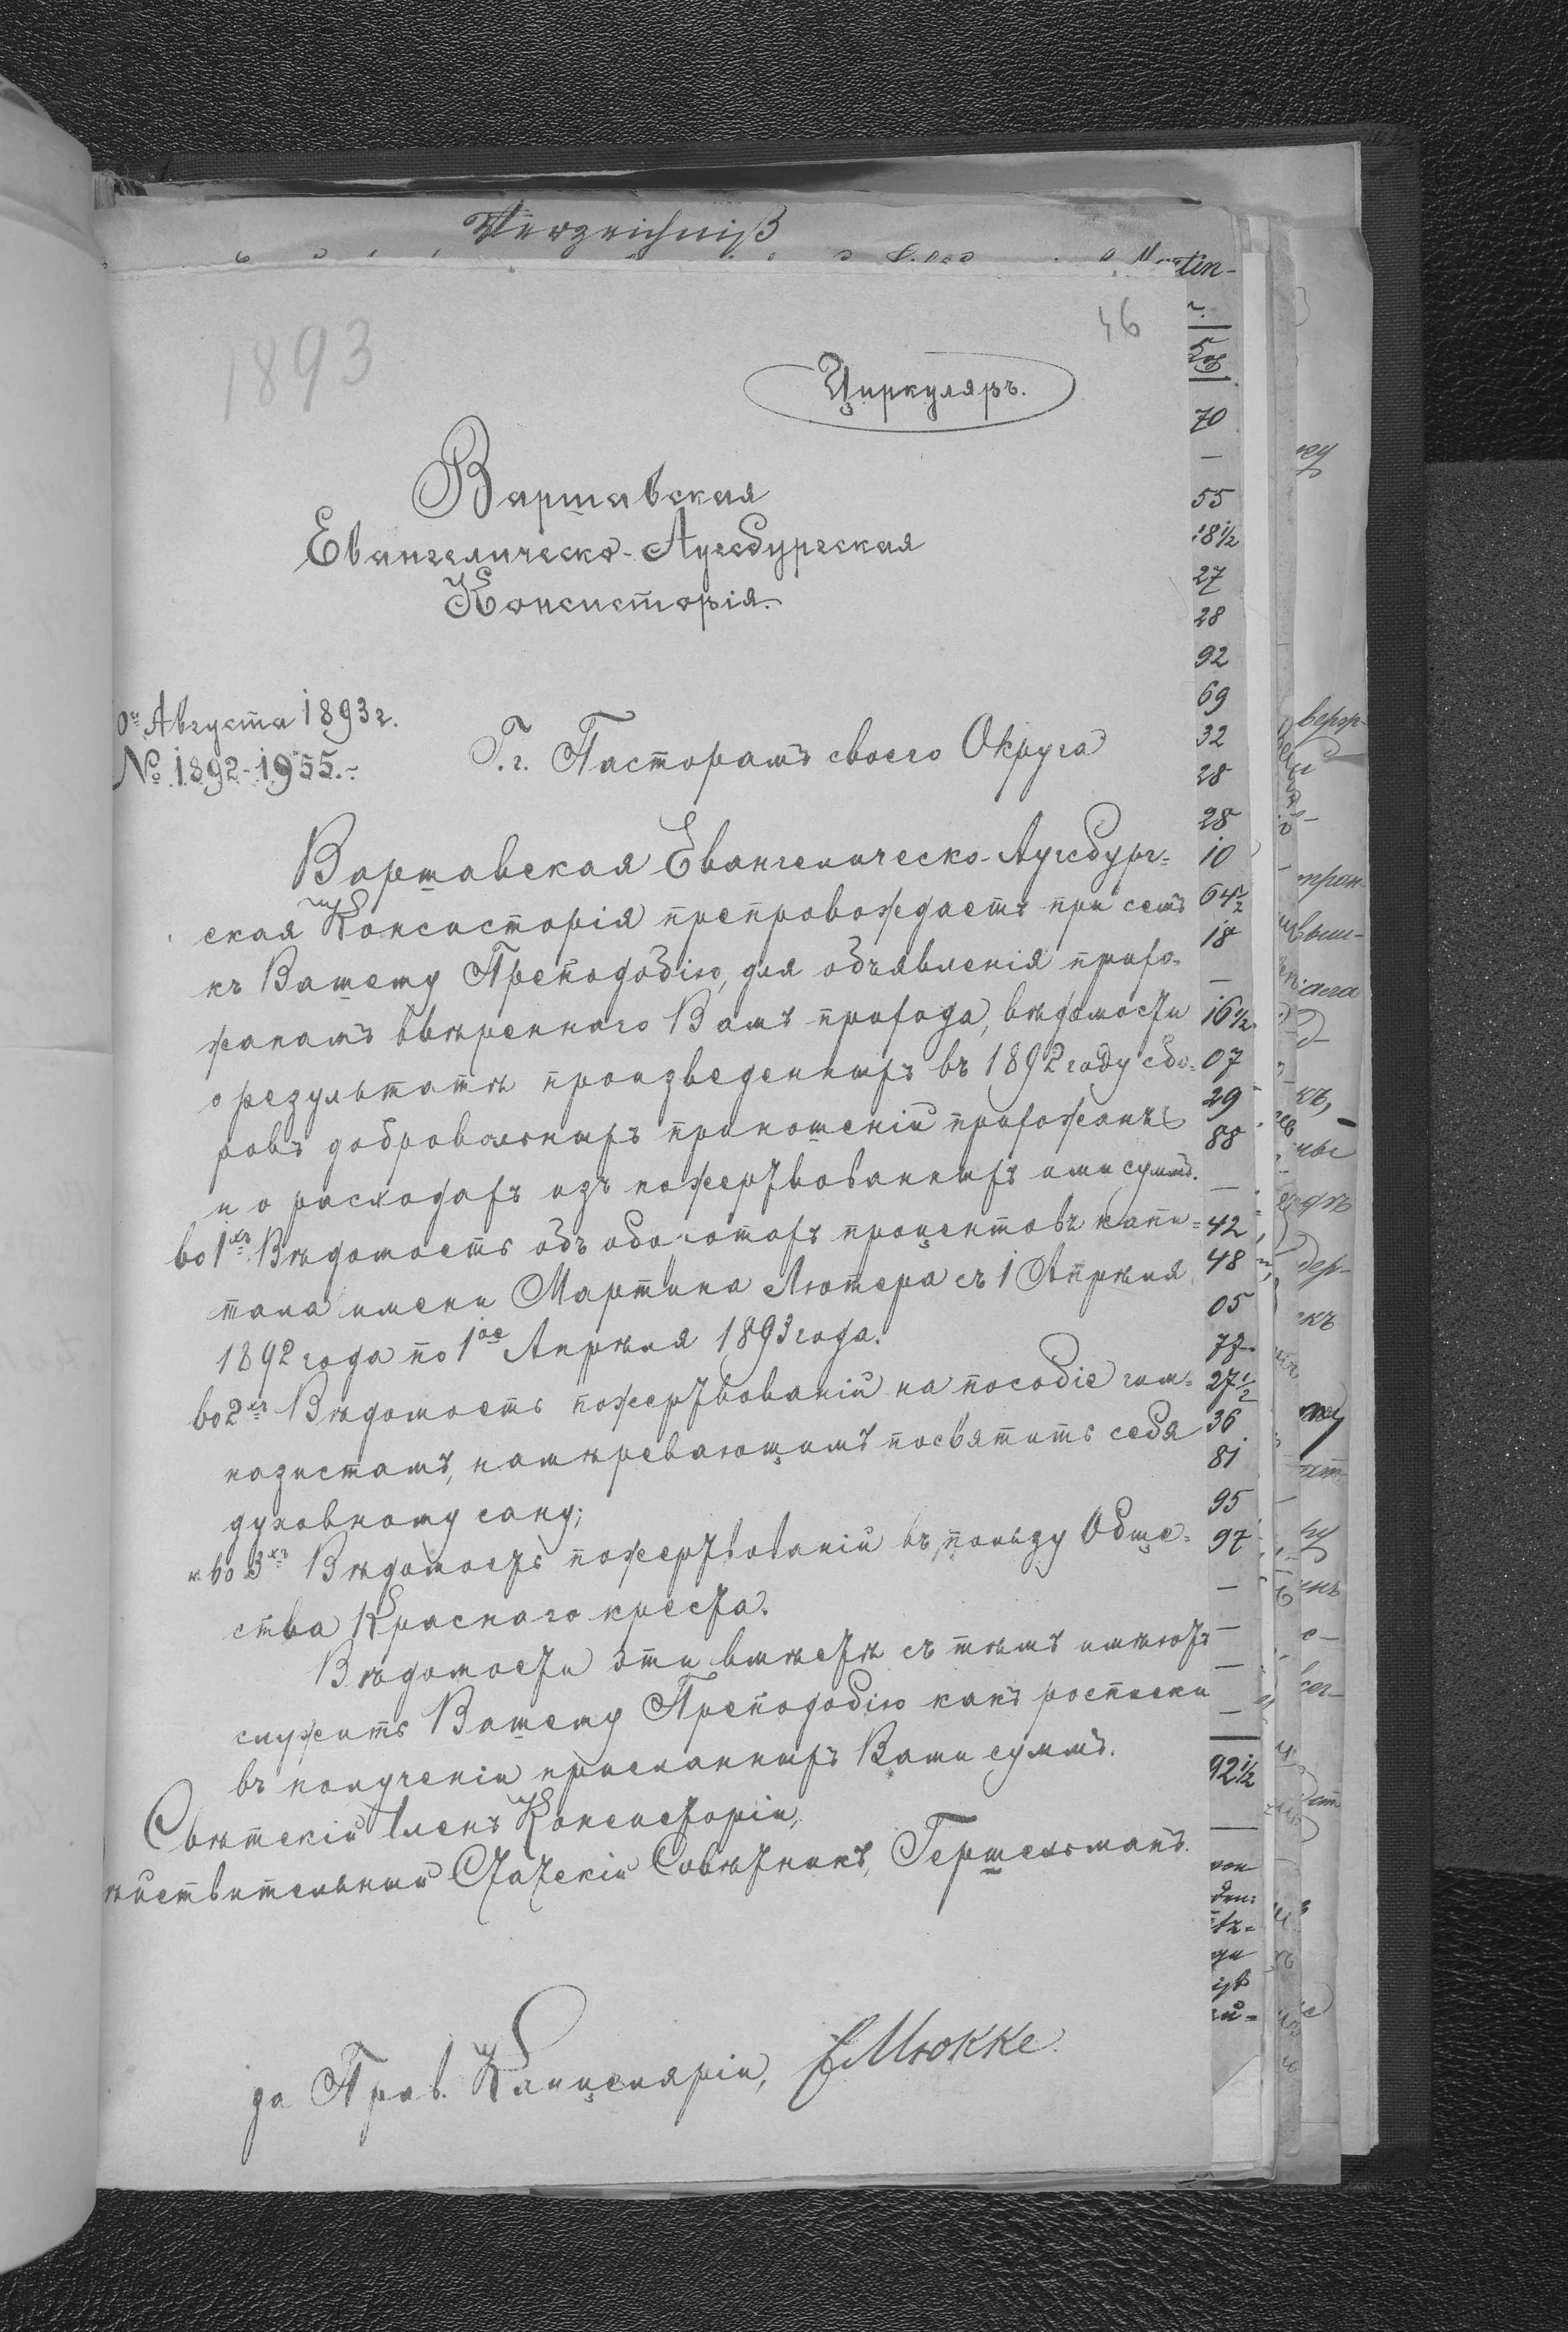 Verzeichniß
1893
46
Циркуляръ.
Варшавская
Евангелическо-Аугсбургская
Консисторія.
Августа 1893 г.
№ 1892-1955.
Г.г. Пасторамъ своего Округа
Варшавская Евангелическо-Аугсбург-
ская Консисторія препровождаетъ при семъ
къ Вашему Преподобію, для объявленія прихо-
жанамъ ввѣреннаго Вамъ прихода, вѣдомости
о результатѣ произведенныхъ въ 1892 году сбо-
ровъ добровольныхъ приношеній прихожанъ
и о расходахъ изъ пожертвованныхъ ими суммъ.
во 1хъ Вѣдомость объ оборотахъ процентовъ капи-
тала имени Мартина Лютера съ 1 Апрѣля
1892 года по 1ое Апрѣля 1893 года.
во 2хъ Вѣдомость пожертвованій на пособіе гим-
назистамъ, намѣревающимъ посвятить себя
духовному сану;
и во 3хъ Вѣдомость пожертвованій въ пользу Обще-
ства Краснаго креста.
Вѣдомости эти вмѣстѣ съ тѣмъ имѣютъ
служить Вашему Преподобію какъ росписки
въ полученіи присланныхъ Вами суммъ.
Свѣтскій Членъ Консисторіи,
ѣйствительный Статскій Совѣтникъ, Гершельманъ.
за Прав. Канцеляріи, Мюкке.
70
—
55
18½
27
28
92
69
32
28
28
10
64½
18
—
16½
07
29
88
—
42
48
05
77
27½
36
81
95
97
—
—
—
—
92½